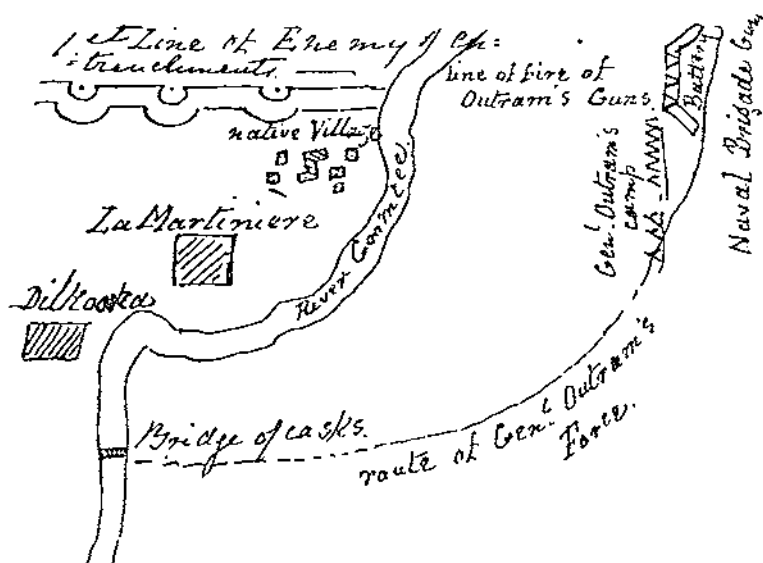 1st Line of Enemy's en:
:trenchments.
line of fire of
Outram's Guns.
Battery
Naval Brigade Guns
native Village
Genl. Outram's
camp
La Martiniere
River Goomtee
Dilkooska
Bridge of casks.
route of Genl. Outram's
Force.